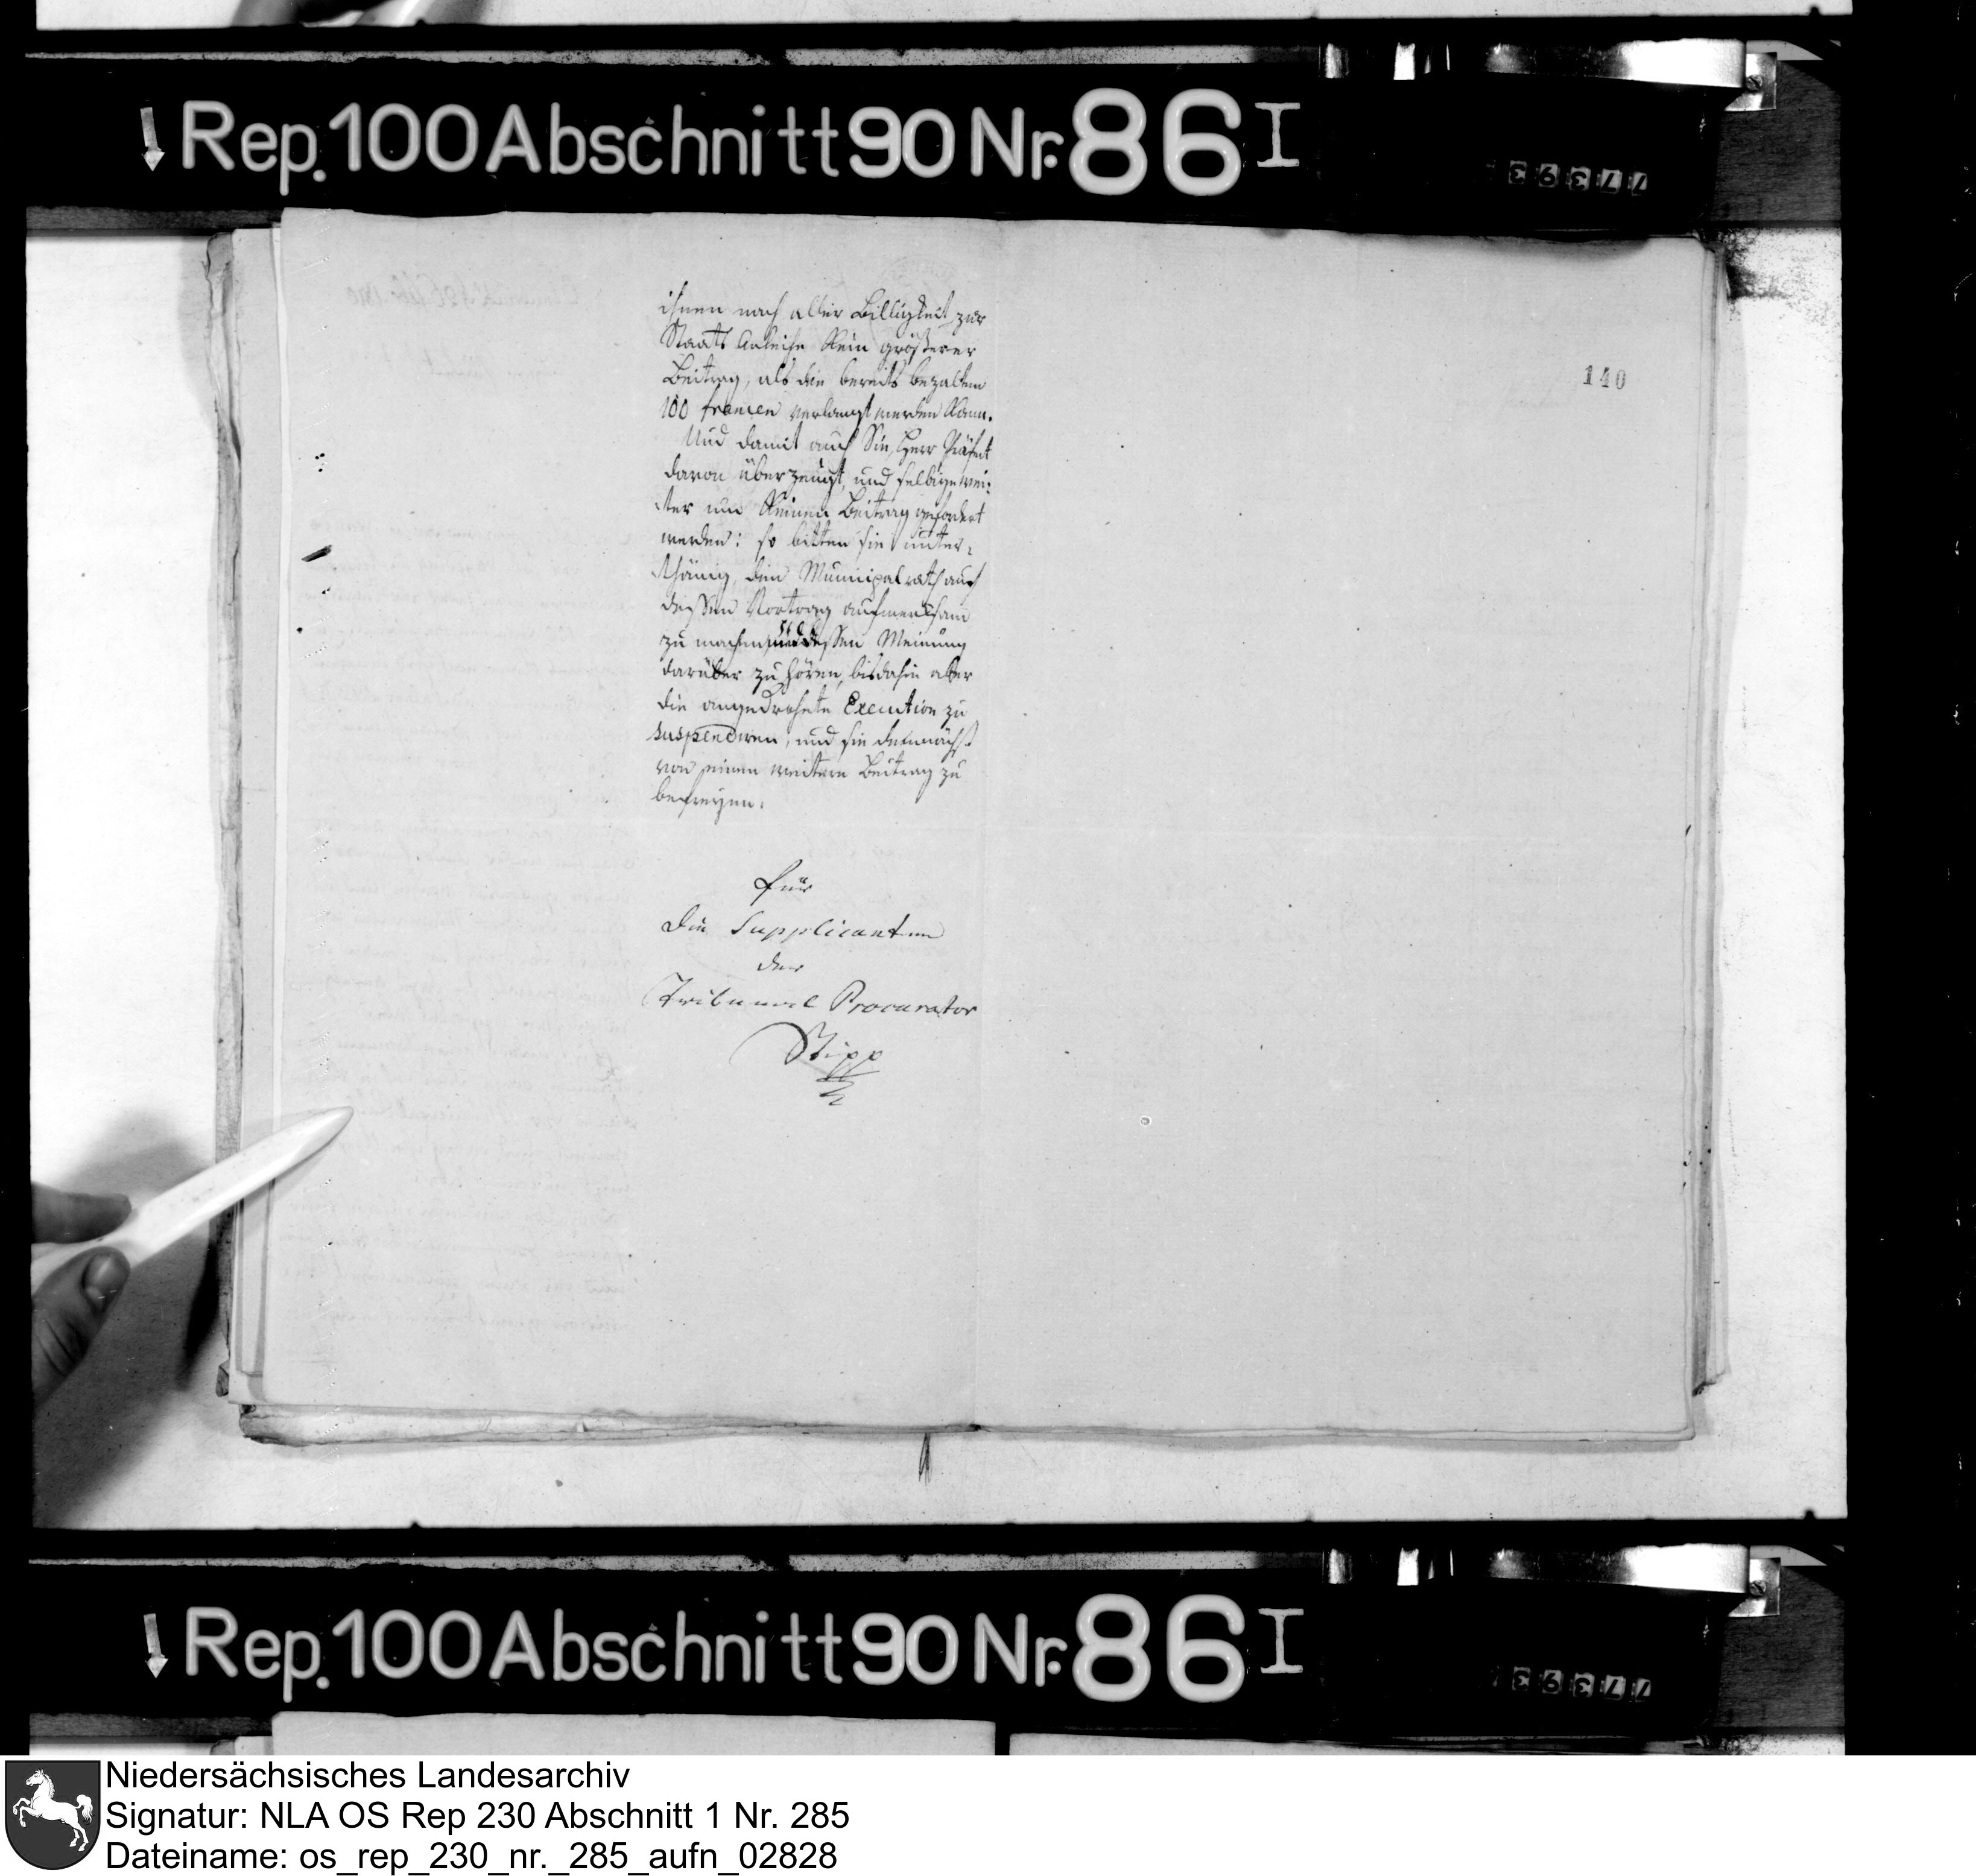 Rep. 100 Abschnitt 90 Nr. 86 I
77393
ihnen nach aller Billigkeit zur
Staats Anleihe kein größerer
Beitrag, als die bereits bezalten
100 francen verlangt werden kann.
Und damit auch Sie, Herr Präfect
davon überzeugt, und selbige wei-
ter um keinen Beitrag gefordert
werden: so bitten sie unter-
thänig, den Municipalrath auf
dessen Vortrag aufmerksam
zu machen, und dessen Meinung
darüber zu hören, bis dahin aber
die angedrohete Execution zu
suspendiren, und sie demnächst
von einem weitern Beitrag zu
befreyen.
140
für
die Supplicanten
der
Tribunal Procurator
Stipp
Rep. 100 Abschnitt 90 Nr. 86 I
77393
Niedersächsisches Landesarchiv
Signatur: NLA OS Rep 230 Abschnitt 1 Nr. 285
Dateiname: os_rep_230_nr._285_aufn_02828